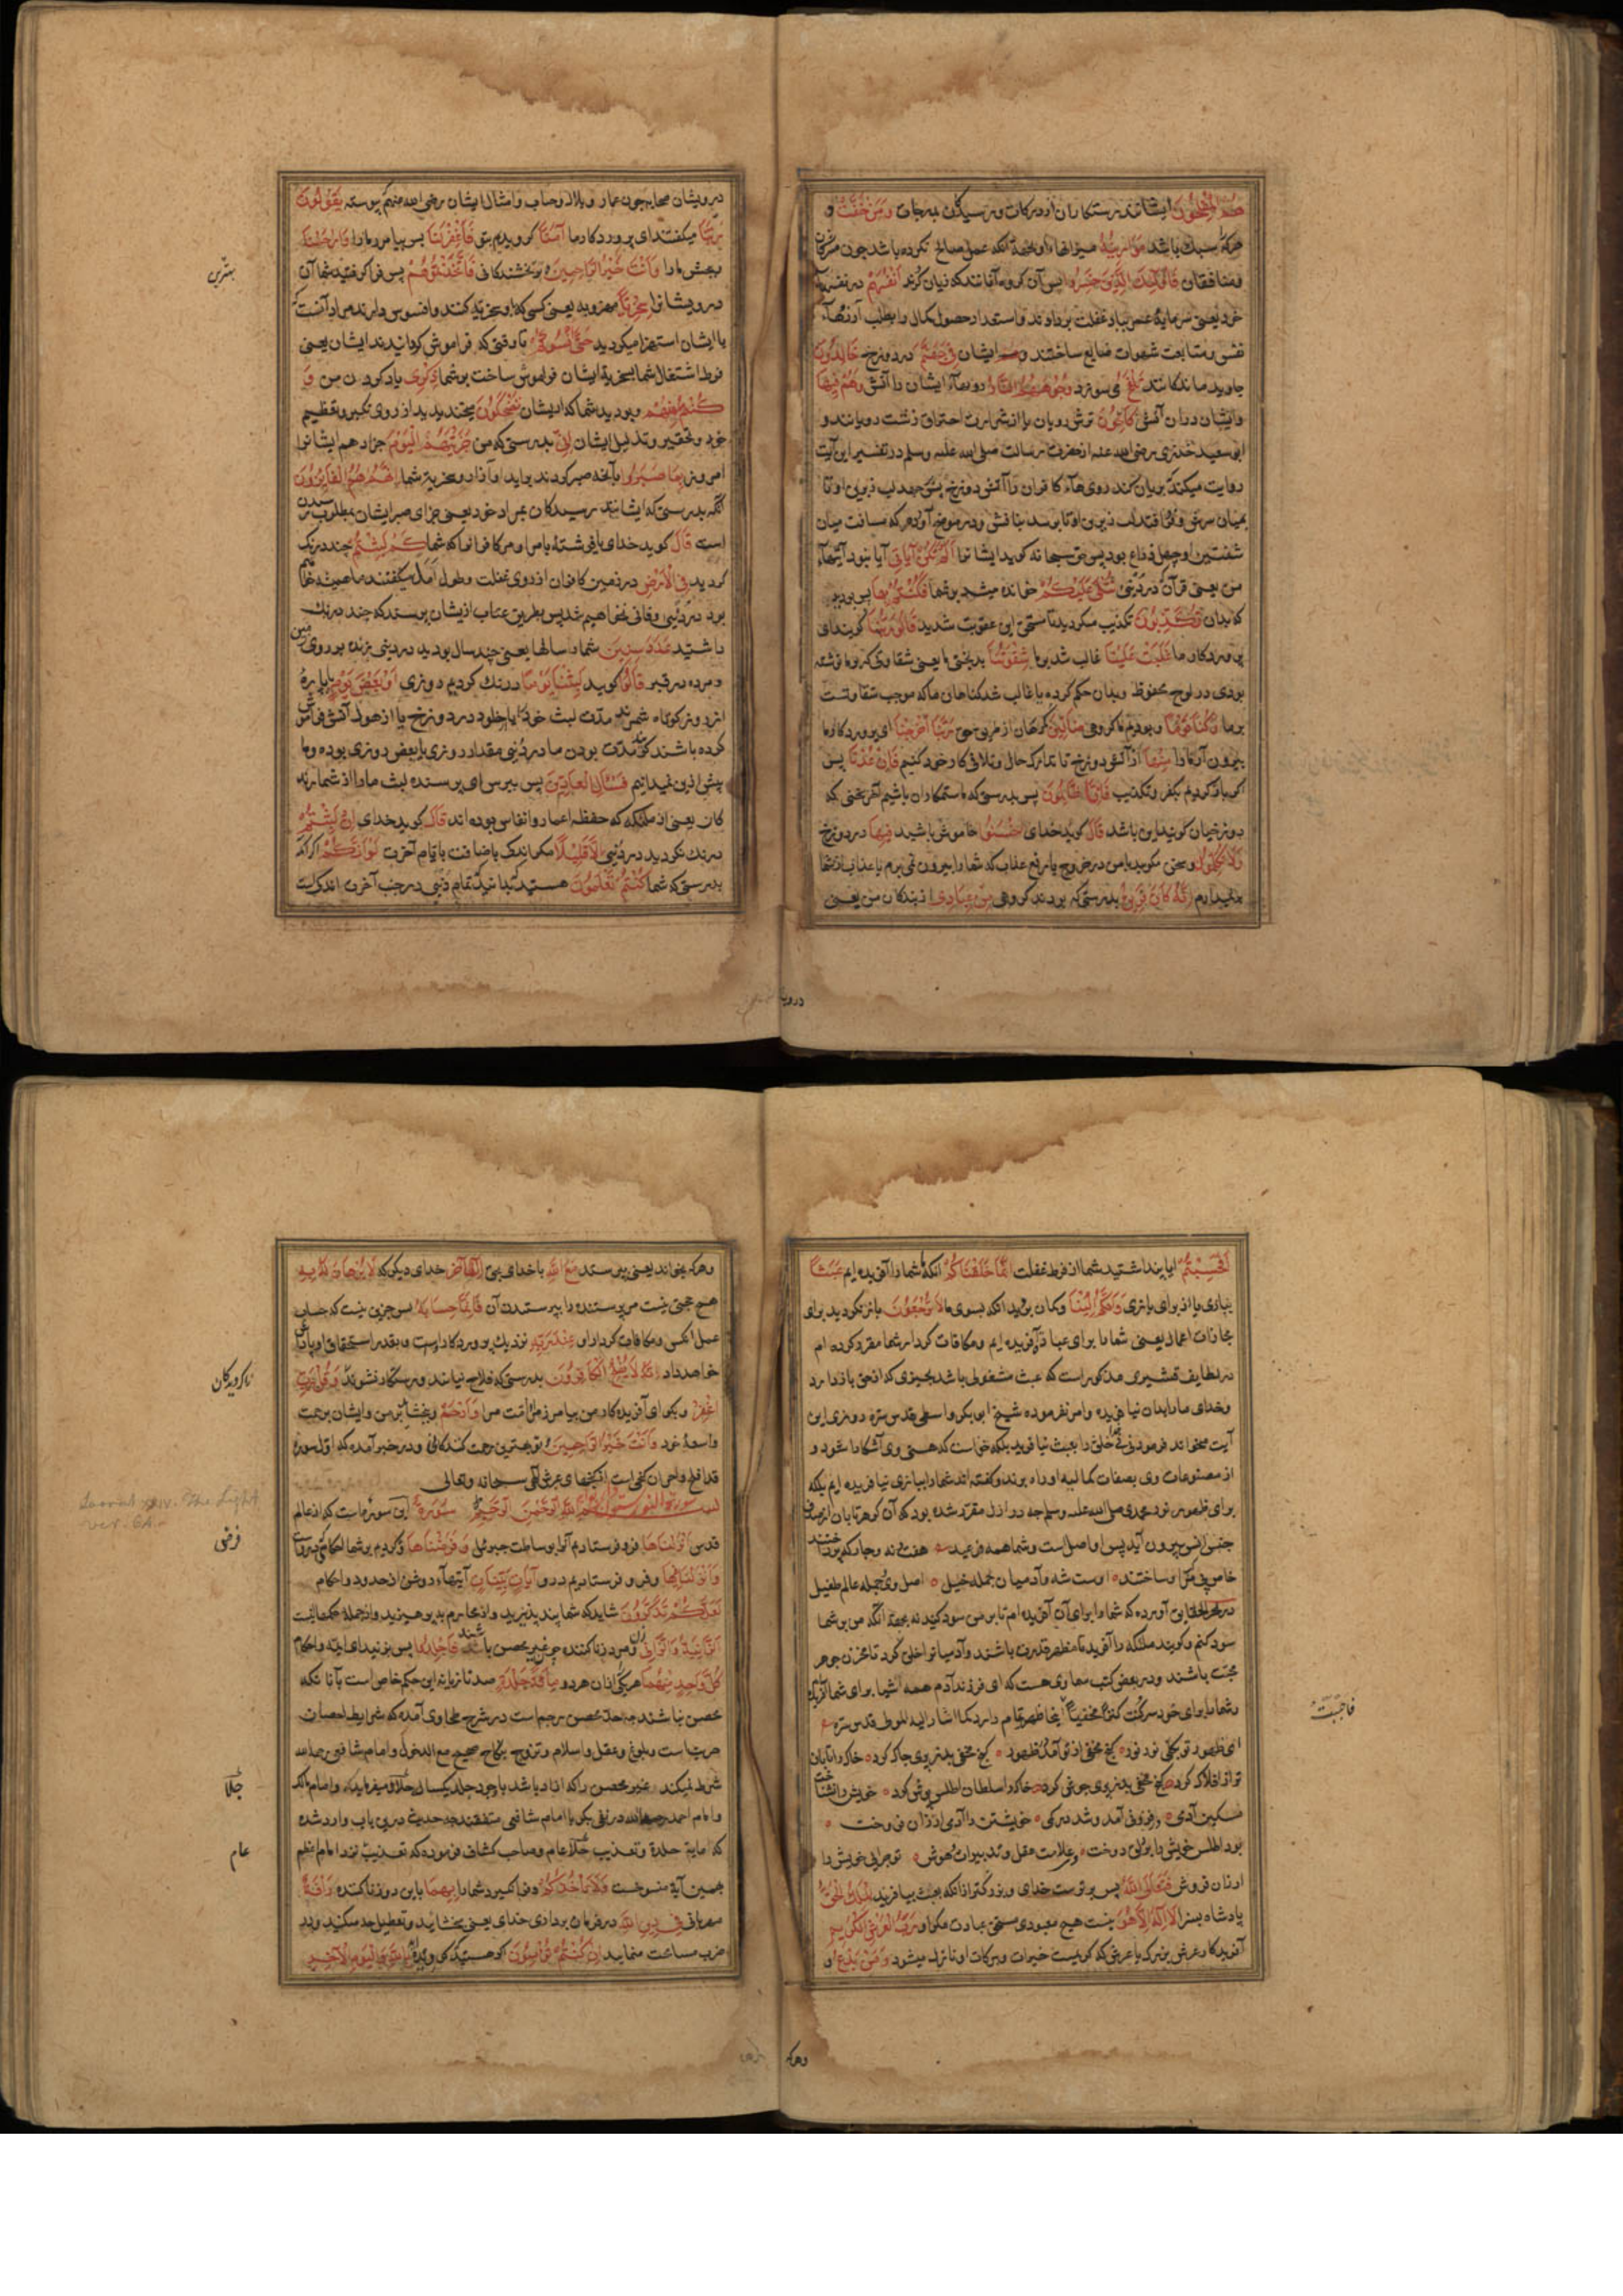 هم المفلحون ایشانند رستکاران از درکات و رسیدکان بدرجات ومن خفت و
هرکه سبك باشد موازینه میزانهاء او بجهة آنکه عمل صالح نکرده باشد چون مشرکان
ومنافقان فاولئك الذین خسروا پس آن کروه آنانند که زیان کردند انفسهم در نفسهاء
خود یعنی سرمایه عمر بباد غفلت بردادند و استعداد حصول کمال را بطلب آرزوهاء
نفس ومتابعت شهوات ضایع ساختند وایشان فی جهنم در دوزخ خالدون
جاوید ماندکانند تلفح می سوزد وجوههم النار رویهاء ایشان را آتش وهم فیها
وایشان دران آتش کالحون ترش رویان یا از شدت احتراق زشت رویانند و
ابی سعید خدری رضی الله عنه از حضرت رسالت صلی الله علیه وسلم در تفسیر این آیت
روایت میکند بریان کند رویهاء کافران را آتش دوزخ پس جهد لب زبرین او تا
بمیان سر وفرو افتد لب زیرین او تا برسد بنافش ودر موضح آورده که مسافت میان
شفتین او چهل ذراع بود پس حق سبحانه کوید ایشانرا الم تکن آیاتی آیا نبود آیتهاء
من یعنی قرآن در دنیی تتلی علیکم خوانده میشد بر شما فکنتم بها پس بودید
که بدان تکذبون تکذیب میکردید تا مستحق این عقوبت شدید قالوا ربنا کویند ای
پروردکار ما غلبت علینا غالب شد بر ما شقوتنا بدبختی ما یعنی شقاوتی که بر ما نوشته
بودی در لوح محفوظ وبدان حکم کرده یا غالب شد کناهان ما که موجب شقاوتست
بر ما وکنا قوما وبودیم ما کروهی ضالین کمرهان از طریق حق ربنا اخرجنا ای پروردکار ما
بیرون آر ما را منها از آتش دوزخ تا تدارك حال وتلافی کار خود کنیم فان عدنا پس
اکر باز کردیم بکفر وتکذیب فانا ظالمون پس بدرستی که ما ستمکاران باشیم آخر سخنی که
دوزخیان کویند این باشد قال کوید خدای اخسئوا خاموش باشید فیها در دوزخ
ولا تکلمون وسخن مکویید با من در خروج یا رفع عذاب که شما را بیرون نمی برم یا عذاب از شما
بر نمیدارم انه کان فریق بدرستی که بودند کروهی من عبادی از بندکان من یعنی
درویشان صحابه چون عمار وبلال وخباب وامثال ایشان رضی الله عنهم پیوسته یقولون
ربنا میکفتند ای پروردکار ما آمنا کرویدیم بتو فاغفرلنا پس بیامرز ما را وارحمنا
وببخش ما را وانت خیر الراحمین وتو بهترین بخشندکانی فاتخذتموهم پس فرا کرفتید شما آن
درویشانرا سخریا مهزو به یعنی کسی که باو سخریه کنند وافسوس دارند مراد آنست که
با ایشان استهزا میکردید حتی انسوکم تا وقتی که فراموش کردانیدند ایشان یعنی
فرط اشتغال شما بسخریه ایشان فراموش ساخت بر شما ذکری یاد کردن من و
کنتم منهم وبودید شما که از ایشان تضحکون میخندیدید از روی تکبر وتعظیم
خود وتحقیر وتذلیل ایشان انی بدرستی که من جزیتهم الیوم جزا دهم ایشانرا
امروز بما صبروا بآنچه صبر کردند بر ایذا وآزار وسخریه شما انهم هم الفائزون
آنکه بدرستی که ایشانند رسیدکان بمراد خود یعنی جزای صبر ایشان بمطلوب رسیدن
است قال کوید خدای یا فرشته بامر او مر کافرانرا که شما کم لبثتم چند درنك
کردید فی الارض در زمین
بود در دنیی وفانی نخواهیم شد پس بطریق عتاب ازیشان پرسند که چند درنك
داشتید عدد سنین شمار سالها یعنی چند سال بودید در دنیی زنده بر روی زمین
ومرده در قبر قالوا کویند لبثنا یوما درنك کردیم روزی او بعض یوم یا پاره
از روز کوتاه شمرند مدت لبث خود را یا خلود در دوزخ یا از هول آتش فراموش
کرده باشند که مدت بودن ما در دنیی مقدار روزی یا بعض روزی بوده وما
بیش ازین نمیدانیم فسئل العادین پس بپرس ای پرسنده لبث ما را از شمارنده
کان یعنی از ملائکه که حفظه اعمار وانفاس بوده اند قال کوید خدای ان لبثتم
درنك نکردید در دنیی الا قلیلا مکر اندکی باضافت با ایام آخرت لو انکم اکر آنکه
بدرستی که شما کنتم تعلمون هستید که بدانید که تمام دنیی در جنب آخرت اندکیست
بهترین
درویشان
افحسبتم ایا پنداشتید شما از فرط غفلت انما خلقناکم آنکه ما شما را آفریده ایم عبثا
ببازی یا از برای بازی وانکم الینا وکمان برید آنکه بسوی ما لا ترجعون باز نکردید برای
مجازات اعمال یعنی شما را برای عبادت آفریده ایم ومکافات کردار شما مقرر کرده ام
در لطایف قشیری مذکور است که عبث مشغولی باشد بچیزی که از حق باز دارد
وخدای ما را بدان نیافریده وامر نفرموده شیخ ابوبکر واسطی قدس سره روزی این
آیت میخواند فرمود نی نی خلق را بعبث نیافرید بلکه خواست که هستی وی آشکارا شود و
از مصنوعات وی بصفات کمالیه او راه برند وکفته اند شما را ببازی نیافریده ایم بلکه
برای ظهور نور محمدی صلی الله علیه وسلم چه در ازل مقرر شده بود که آن کوهر تابان از صدف
جنس انس بیرون آید پس او اصل است وشما همه فرعید هفت ونه وچار که پرداختند
خاص پی موکب او ساختند اوست شه وآدمیان جمله خیل اصل وی وجمله عالم طفیل
در بحر الحقایق آورده که شما را برای آن آفریده ام تا بر من سود کنید نه بجهة آنکه من بر شما
سود کنم وکویند ملائکه را آفرید تا مظهر قدرت باشند وآدمیانرا خلق کرد تا مخزن جوهر
محبت باشند ودر بعض کتب سماوی هست که ای فرزند آدم همه اشیا برای شما آفریدم
وشما را برای خود سر کنت کنزا مخفیا اینجا ظهور تمام دارد کما اشار الیه المولوی قدس سره
ای ظهور تو بکلی نور نور کنج مخفی از تو آمد در ظهور کنج مخفی بد زپری چاك کرد خاك را تابان
تر از افلاك کرد کنج مخفی بد زپری جوش کرد خاك را سلطان اطلس پوش کرد خویش را نشناخت
مسکین آدمی از فزونی آمد وشد در کمی خویشتن را آدمی ارزان فروخت
بود اطلس خویش را بر دلق دوخت ای غلامت عقل وتدبیرات وهوش تو چرایی خویش را
ارزان فروش فتعالی الله پس برتر است خدای وبزرکتر از آنکه بعبث بیافریند الملك الحق
پادشاه بسزا لا اله الا هو نیست هیچ معبودی مستحق عبادت مکر او رب العرش الکریم
آفریدکار عرش بزرك یا عرشی که کریمست خیرات وبرکات او نازل میشود ومن یدع او
فاحببت
وهرکه بخواند یعنی پرستد مع الله با خدای بحق الها آخر خدای دیکر که لا برهان له به
هیچ حجتی نیست مر پرستنده را بپرستیدن آن فانما حسابه پس جزین نیست که حساب
عمل آنکس ومکافات کردار او عند ربه نزدیك پروردکار اوست وبقدر استحقاق او پاداش
خواهد داد انه لا یفلح الکافرون بدرستی که فلاح نیابند ورستکار نشوند وقل رب
اغفر وبکو ای آفریدکار من بیامرز امت مرا وارحم وببخشای بر من وایشان برحمت
واسعه خود وانت خیر الراحمین وتو بهترین رحمت کنندکانی ودر خبر آمده که اول سوره
قد افلح واخر آن کنجی است از کنجهای عرش الهی سبحانه وتعالی
بسم الله الرحمن الرحیم سورة این سوره است که از عالم
قدس انزلناها فرو فرستادیم آنرا بوساطت جبرئیل وفرضناها وفرض کردیم بر شما احکامی که دروست
وانزلنا فیها وفرو فرستادیم درو آیات بینات آیتهاء روشن از حدود واحکام
لعلکم تذکرون شاید که شما پند پذیرید واز محارم بپرهیزید واز جمله حکمها اینست
الزانیة والزانی زن ومرد زنا کننده چون غیر محصن باشند فاجلدوا پس بزنید ای ائمه وحکام
کل واحد منهما هر یکی را از آن هر دو مأة جلدة صد تازیانه این حکم خاص است بآنانکه
محصن نباشند چه حد محصن رجم است در شرح طحاوی آمده که شرایط احصان
حریت است وبلوغ وعقل واسلام وتزوج بنکاح صحیح مع الدخول وامام شافعی رحمه الله
شرط نمیکند وغیر محصن را که آزاد باشد با وجود جلد یکسال جلا میفرماید وامام مالك
وامام احمد رحمهما الله در نفی بکر با امام شافعی متفقند چه حدیث درین باب وارد شده
که مایة جلدة وتعذیب عام وصاحب کشاف فرموده که تعذیب نزد امام اعظم
بهمین آیة منسوخست ولا تأخذکم وفرا نکیرد شما را بهما باین دو زنا کننده رأفة
مهربانی فی دین الله در فرمان برداری خدای یعنی بخشاید وتعطیل حد مکنید ودر
ضرب مساعت منمایید ان کنتم تؤمنون اکر هستید که کرویده اید بالله والیوم الآخر
ناکرویدکان
Soorut xxiv. The Light
ver. 64.
فرض
جلا
عام
وهرکه